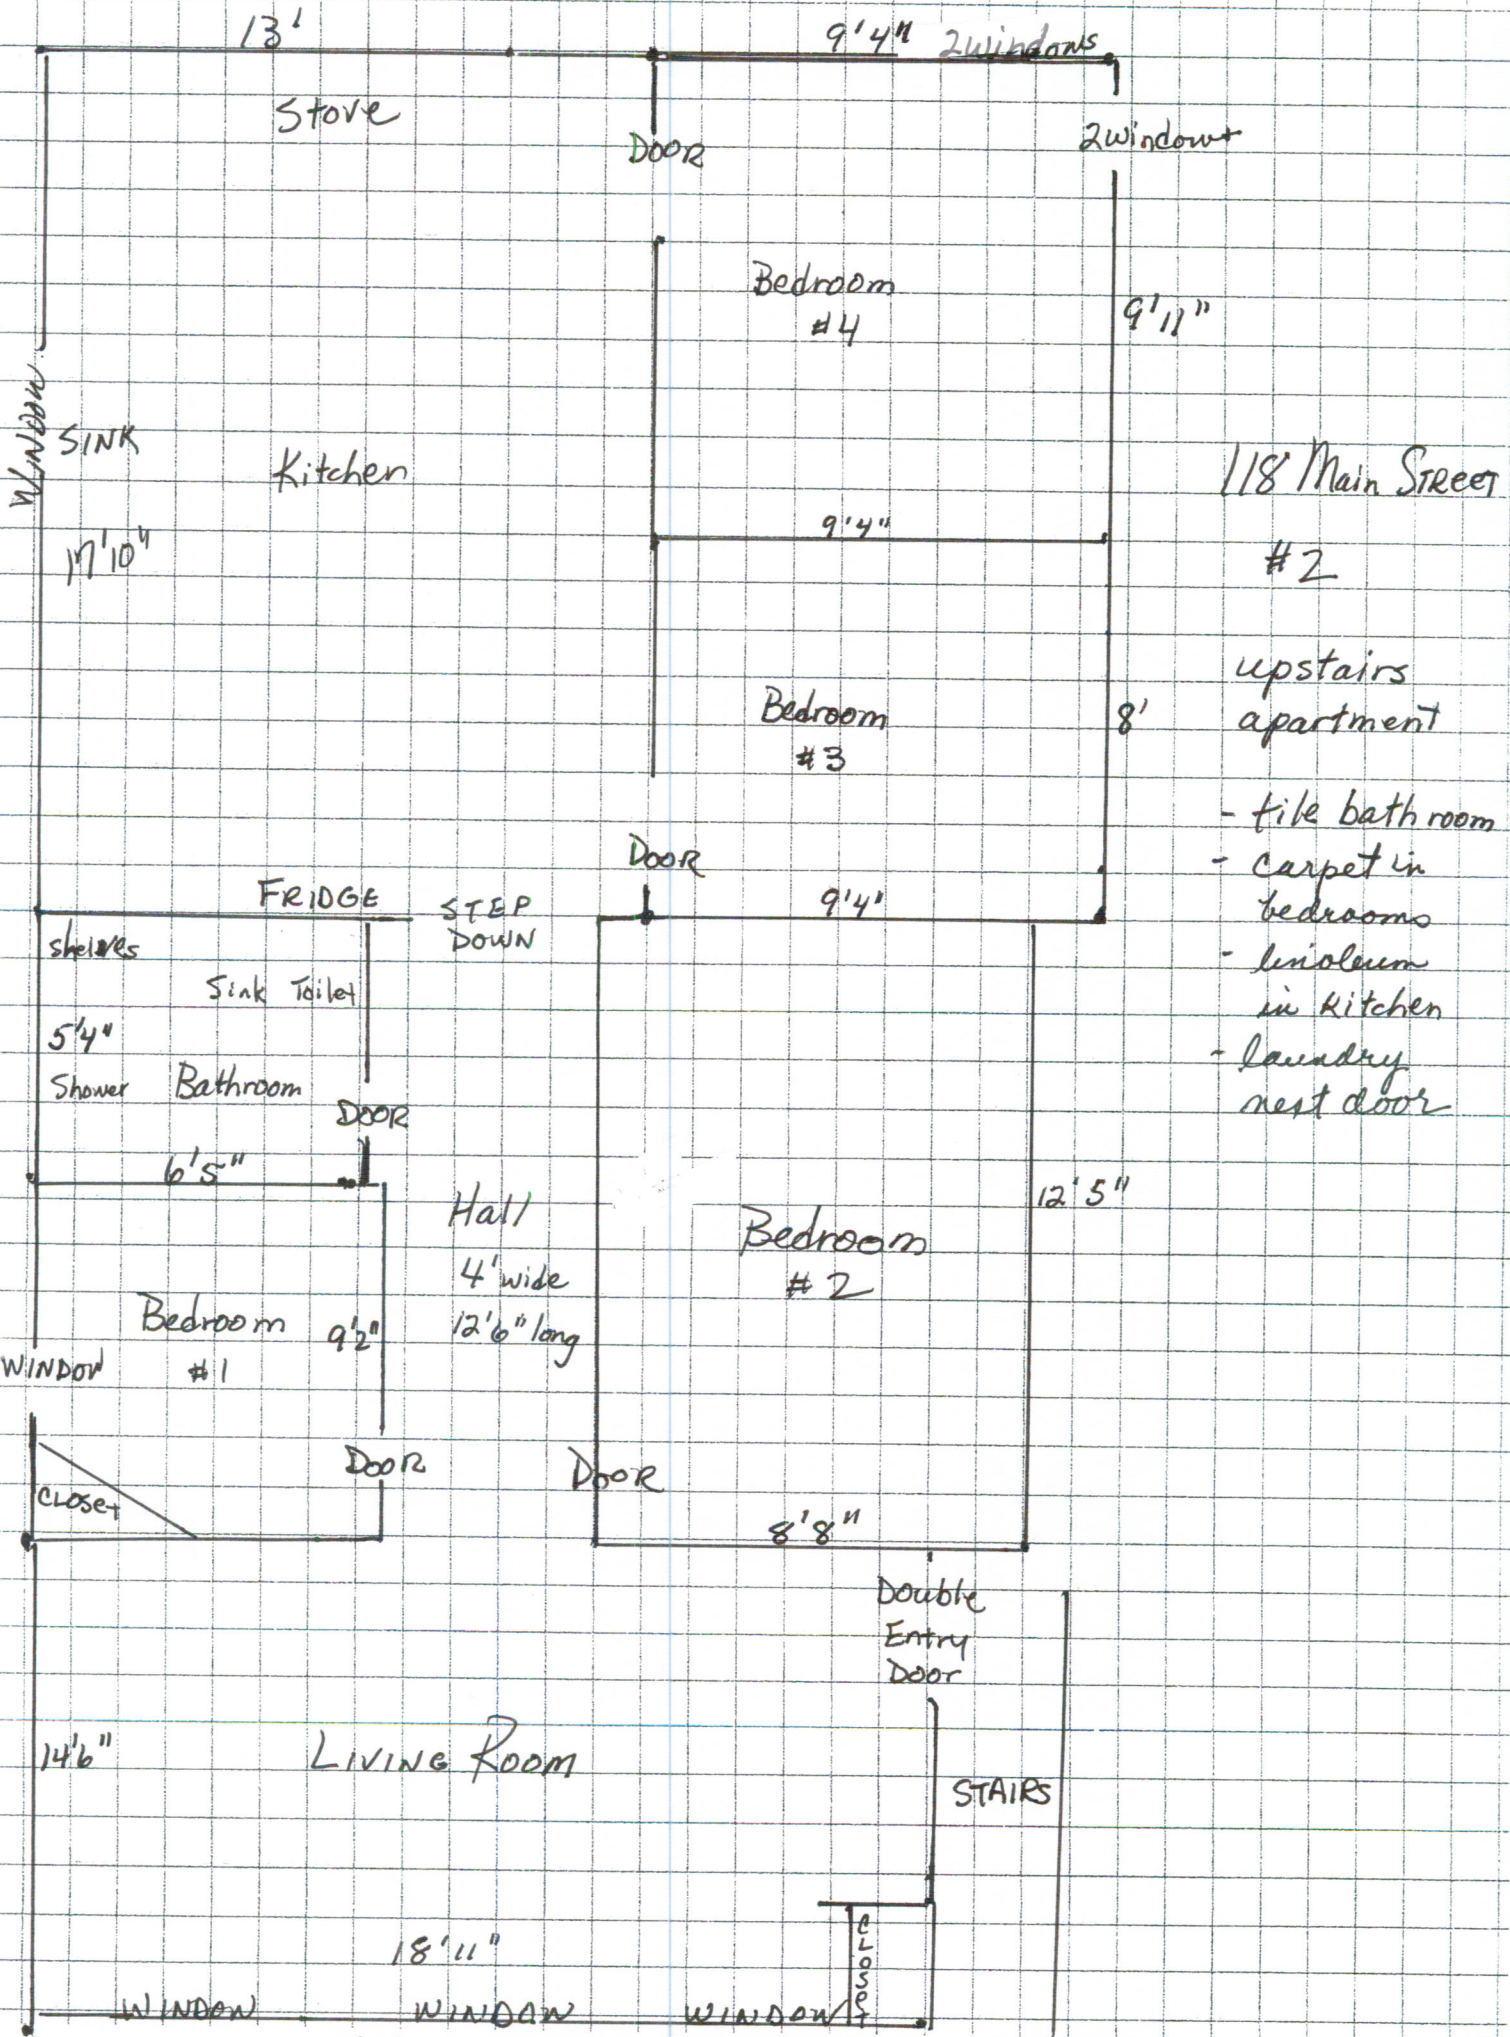 13'
9'4" 2windows
Stove
DOOR
2windows
Bedroom
#4
9'11"
WINDOW
SINK
Kitchen
118 Main STREET
9'4"
17'10"
#2
upstairs
apartment
Bedroom
#3
8'
- tile bathroom
- carpet in
bedrooms
- linoleum
in kitchen
- laundry
nest door
DOOR
FRIDGE
STEP
DOWN
9'4"
shelves
Sink Toilet
5'4"
Shower Bathroom
DOOR
6'5"
Hall
4' wide
12'6" long
Bedroom
#2
12'5"
Bedroom
#1
9'2"
WINDOW
DOOR
DOOR
CLOSET
8'8"
Double
Entry
Door
14'6"
LIVING ROOM
STAIRS
CLOSET
18'11"
WINDOW WINDOW WINDOW